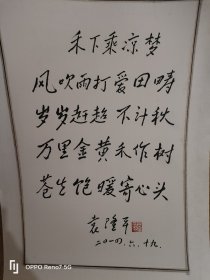 禾下乘凉梦
风吹雨打爱田畴
岁岁赶超不计秋
万里金黄禾作树
苍生饱暖寄心头
袁隆平
二〇〇四.六.十九.
OPPO Reno7 5G